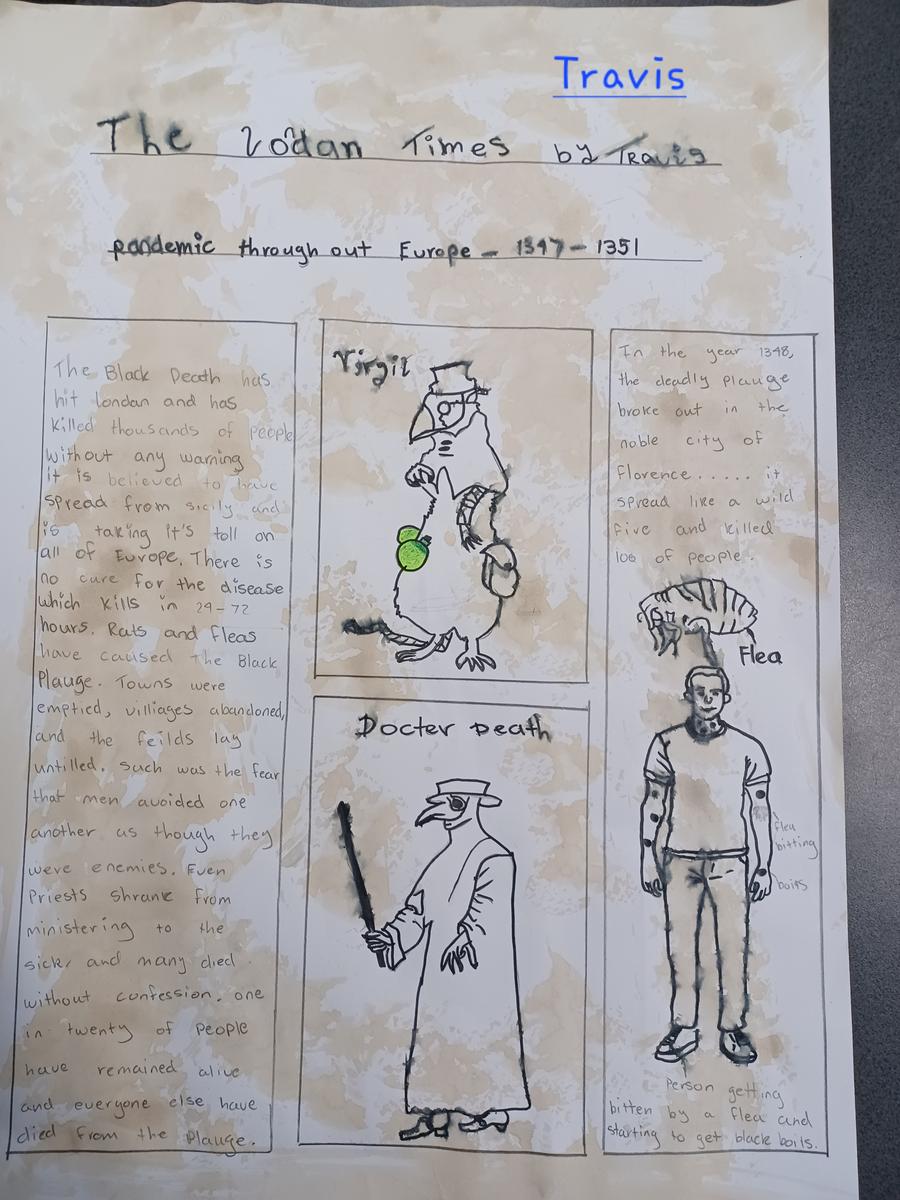 Travis
The Lodan Times by Travis
pandemic through out Europe - 1347 - 1351
The Black Death has
hit London and has
killed thousands of people
without any warning
it is believed to have
spread from sicily and
is taking it's toll on
all of Europe. There is
no cure for the disease
which kills in 24-72
hours. Rats and Fleas
have caused The Black
Plauge. Towns were
emptied, villiages abandoned,
and the feilds lay
untilled. Such was the fear
that men avoided one
another as though they
were enemies. Even
Priests shrank from
ministering to the
sick, and many died
without confession. one
in twenty of people
have remained alive
and everyone else have
died from the Plauge.
Virgil
Docter Death
In the year 1348,
the deadly plauge
broke out in the
noble city of
Florence..... it
spread like a wild
five and killed
100 of people.
Flea
flea
bitting
boils
Person getting
bitten by a flea and
starting to get black boils.